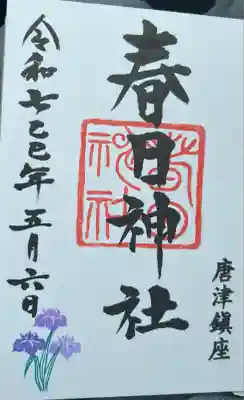 唐津鎮座
春日神社
春日
神社
令和七己巳年五月六日